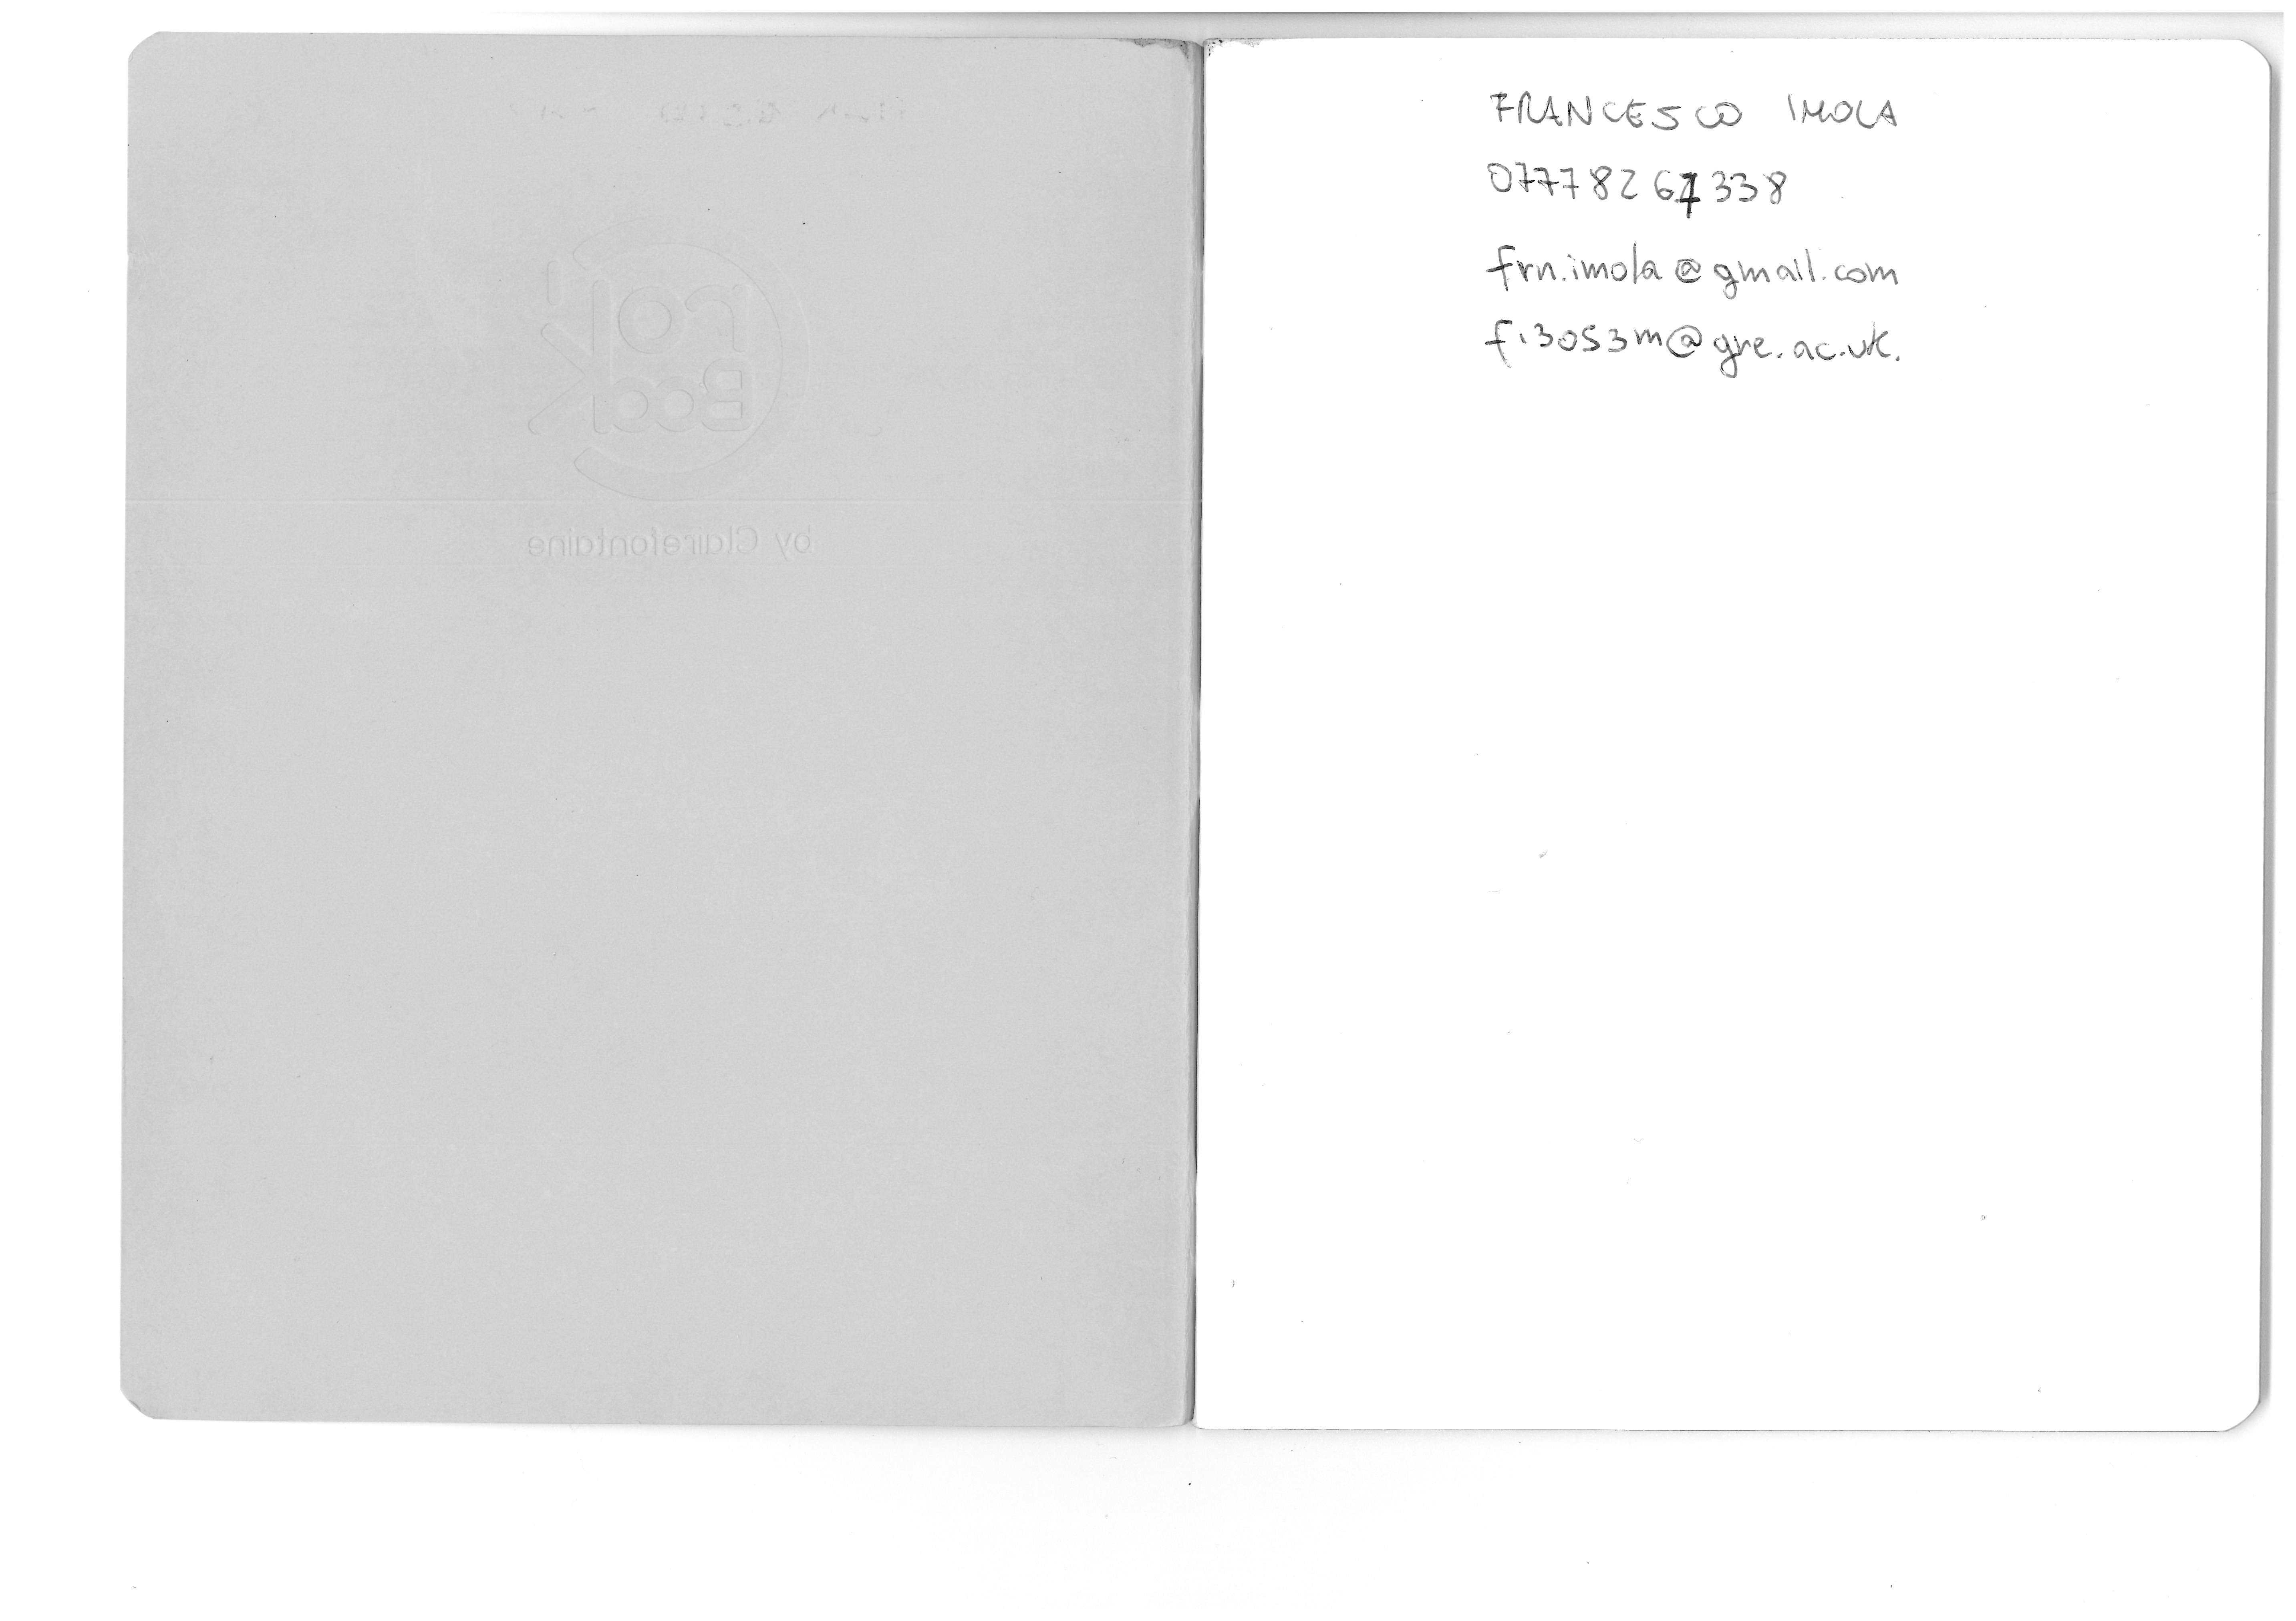 Crok'
Book
by Clairefontaine
FRANCESCO IMOLA
07778261338
frn.imola@gmail.com
fi3053m@gre.ac.uk.